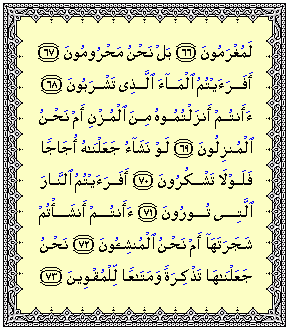 لَمُغْرَمُونَ ﴿٦٦﴾ بَلْ نَحْنُ مَحْرُومُونَ ﴿٦٧﴾
أَفَرَءَيْتُمُ ٱلْمَآءَ ٱلَّذِى تَشْرَبُونَ ﴿٦٨﴾
ءَأَنتُمْ أَنزَلْتُمُوهُ مِنَ ٱلْمُزْنِ أَمْ نَحْنُ
ٱلْمُنزِلُونَ ﴿٦٩﴾ لَوْ نَشَآءُ جَعَلْنَٰهُ أُجَاجًا
فَلَوْلَا تَشْكُرُونَ ﴿٧٠﴾ أَفَرَءَيْتُمُ ٱلنَّارَ
ٱلَّتِى تُورُونَ ﴿٧١﴾ ءَأَنتُمْ أَنشَأْتُمْ
شَجَرَتَهَآ أَمْ نَحْنُ ٱلْمُنشِـُٔونَ ﴿٧٢﴾ نَحْنُ
جَعَلْنَٰهَا تَذْكِرَةً وَمَتَٰعًا لِّلْمُقْوِينَ ﴿٧٣﴾